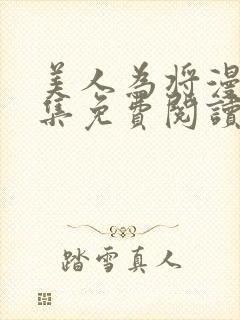 美人為将漫
集免費閱讀
踏雪真人